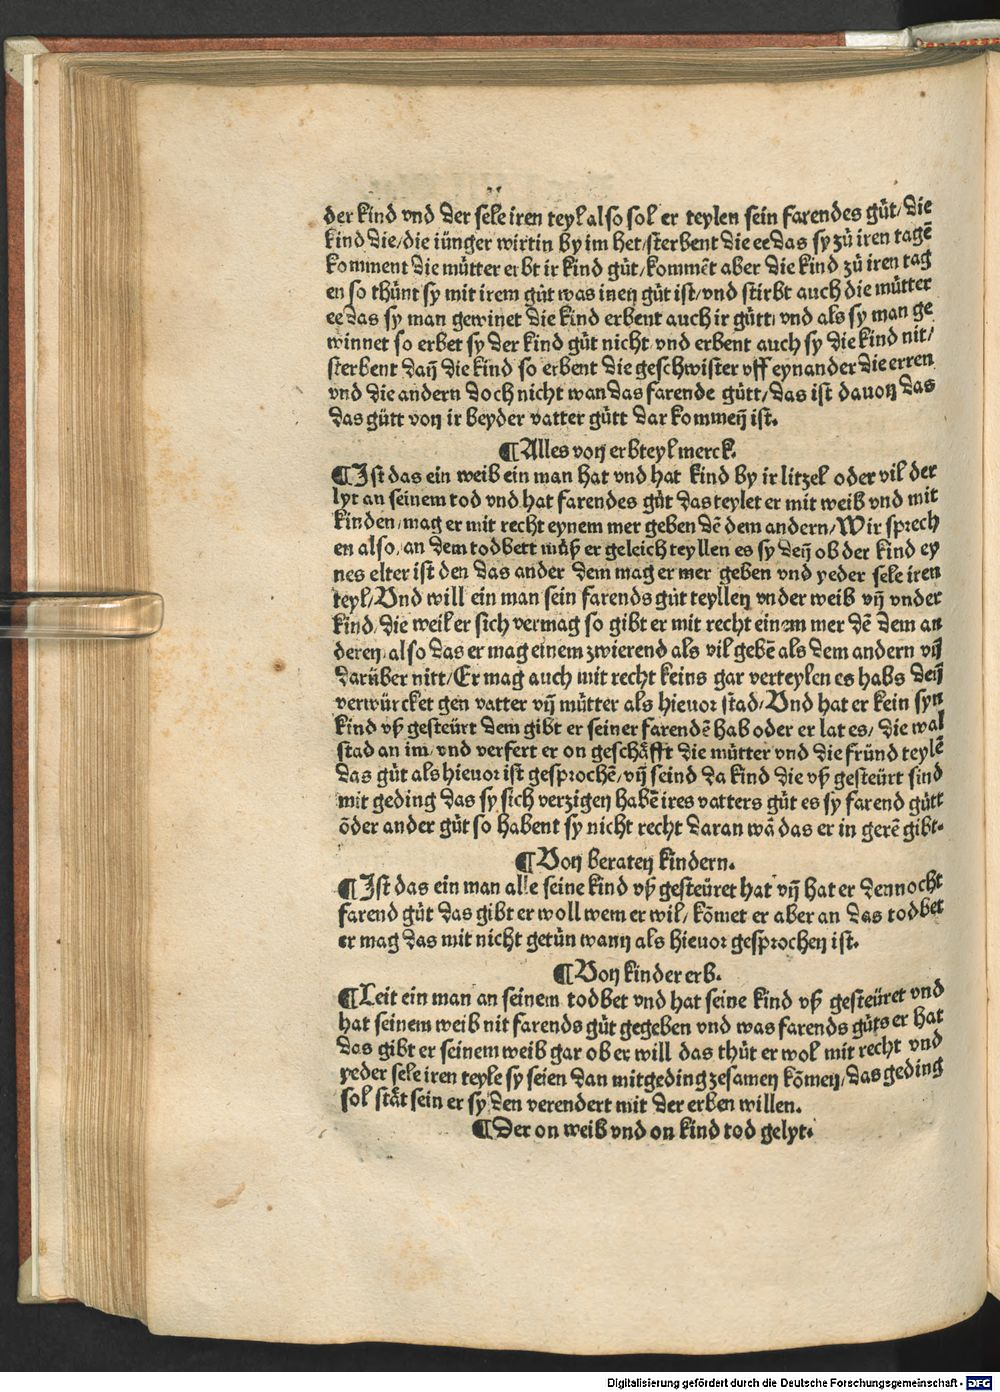 der kind vnd der sele iren teyl also sol er teylen sein farendes güt/die
kind die/die iünger wirtin by im het/sterbent die ee das sy zü iren tagē
komment die mütter erbt ir kind güt/kommēt aber die kind zü iren tag
en so thünt sy mit irem güt was inen güt ist/vnd stirbt auch die mütter
ee das sy man gewinet die kind erbent auch ir gütt/vnd als sy man ge
winnet so erbet sy der kind güt nicht vnd erbent auch sy die kind nit/
sterbent dañ die kind so erbent die geschwister vff eynander die erren
vnd die andern doch nicht wan das farende gütt/das ist dauon das
das gütt von ir beyder vatter gütt dar kommen ist.
¶Alles von erbteyl merck.
¶Ist das ein weib ein man hat vnd hat kind by ir litzel oder vil der
lyt an seinem tod vnd hat farendes güt das teylet er mit weib vnd mit
kinden/mag er mit recht eynem mer geben dē dem andern/Wir sprech
en also/an dem todbett müß er geleich teyllen es sy den ob der kind ey
nes elter ist den das ander dem mag er mer geben vnd yeder sele iren
teyl/Vnd will ein man sein farends güt teyllen vnder weib vñ vnder
kind/die weil er sich vermag so gibt er mit recht einem mer dē dem an
deren/also das er mag einem zwierend als vil gebē als dem andern vñ
darüber nitt/Er mag auch mit recht keins gar verteylen es habs den
verwürcket gen vatter vñ mütter als hieuor stad/Vnd hat er kein syn
kind vß gesteürt dem gibt er seiner farendē hab oder er lat es/die wal
stad an im/vnd verfert er on geschäfft die mütter vnd die fründ teylē
das güt als hieuor ist gesprochē/vñ seind da kind die vß gesteürt sind
mit geding das sy sich verzigen habē ires vatters güt es sy farend gütt
öder ander güt so habent sy nicht recht daran wā das er in gerē gibt.
¶Von beraten kindern.
¶Ist das ein man alle seine kind vß gesteüret hat vñ hat er dennocht
farend güt das gibt er woll wem er wil/kōmet er aber an das todbet
er mag das mit nicht getün wann als hieuor gesprochen ist.
¶Von kinder erb.
¶Leit ein man an seinem todbet vnd hat seine kind vß gesteüret vnd
hat seinem weib nit farends güt gegeben vnd was farends güts er hat
das gibt er seinem weib gar ob er will das thüt er wol mit recht vnd
yeder sele iren teyle sy seien dan mit geding zesamen kōmen/das geding
sol stät sein er sy den verendert mit der erben willen.
¶Der on weib vnd on kind tod gelyt.
Digitalisierung gefördert durch die Deutsche Forschungsgemeinschaft - DFG